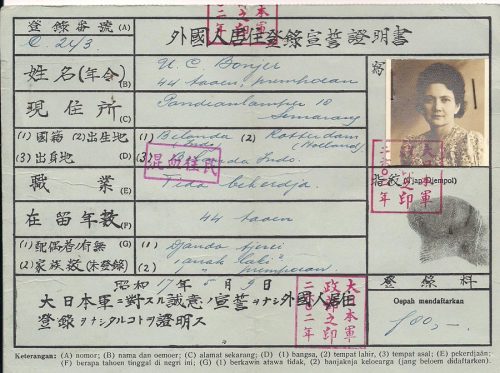 登錄番號(A)
C. 2413.
外國人居住登錄宣誓證明書
姓名(年令)(B)
U. C. Bonjer
44 taoen, prempoean
寫
現住所(C)
Pandeanlamper 18
Semarang
(1)國籍 (2)出生地
(3)出身地(D)
(1) Belanda (2) Rotterdam
(Indo) (Holland)
(3) Belanda Indo.
混血住民
職業(E)
Tida bekerdja
指紋(Tjap djempol)
在留年數(F)
44 taoen
(1)配偶者ノ有無(G)
(2)家族數(未登錄)
(1) Djanda
(2) 1 anak laki
1 " prempoean.
昭和17年5月9日
大日本軍ニ對スル誠意ノ宣誓ヲナシ外國人居住
登錄ヲナシタルコトヲ證明ス
大日本軍
政部之印
二六〇二年
登錄料
Oepah mendaftarkan
f 80,—
Keterangan: (A) nomor; (B) nama dan oemoer; (C) alamat sekarang; (D) (1) bangsa, (2) tempat lahir, (3) tempat asal; (E) pekerdjaän;
(F) berapa tahoen tinggal di negri ini; (G) (1) berkawin atawa tidak, (2) banjaknja keloearga (jang beloem didaftarkan).